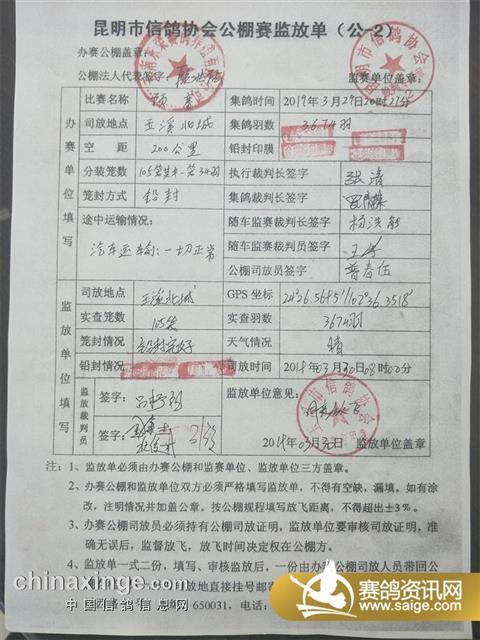 昆明市信鸽协会公棚赛监放单（公-2）
办赛公棚盖章：
公棚法人代表签字：
监赛单位盖章：
昆明市信鸽协会
办赛单位填写
比赛名称 预赛 集鸽时间 2019年3月29日20时21分
司放地点 玉溪北城 集鸽羽数 3674羽
空距 200公里 铅封印膜
分装笼数 执行裁判长签字
笼封方式 铅封 集鸽裁判长签字
途中运输情况： 随车监赛裁判长签字
汽车运输：一切正常 随车监赛裁判员签字
公棚司放员签字
监放单位填写
司放地点 玉溪北城 GPS 坐标 24°26.5645'/102°36.3518'
实查笼数 105笼 实查羽数 3674羽
笼封情况 铅封完好 天气情况 晴
铅封情况 司放时间 2019年03月30日08时00分
监放裁判员 签字： 监放单位意见：
签字： 2019年03月30日 监放单位盖章
注：1、监放单必须由办赛公棚和监赛单位、监放单位三方盖章。
2、办赛公棚和监放单位双方必须严格填写监放单，不得有空缺，漏填。如有涂
改，注明情况并加盖公章。按公棚规程填写放飞距离，不得超出±3%。
3、办赛公棚司放员必须持有公棚司放证明，监放单位要审核司放证明，准
确无误后，监督放飞，放飞时间决定权在公棚方。
4、监放单一式二份，填写、审核监放后，一份由办赛公棚司放人员带回公
放地直接挂号邮寄
650031，电话：
chinaxinge.com
中国信鸽信息网
赛鸽资讯网
www.saige.com